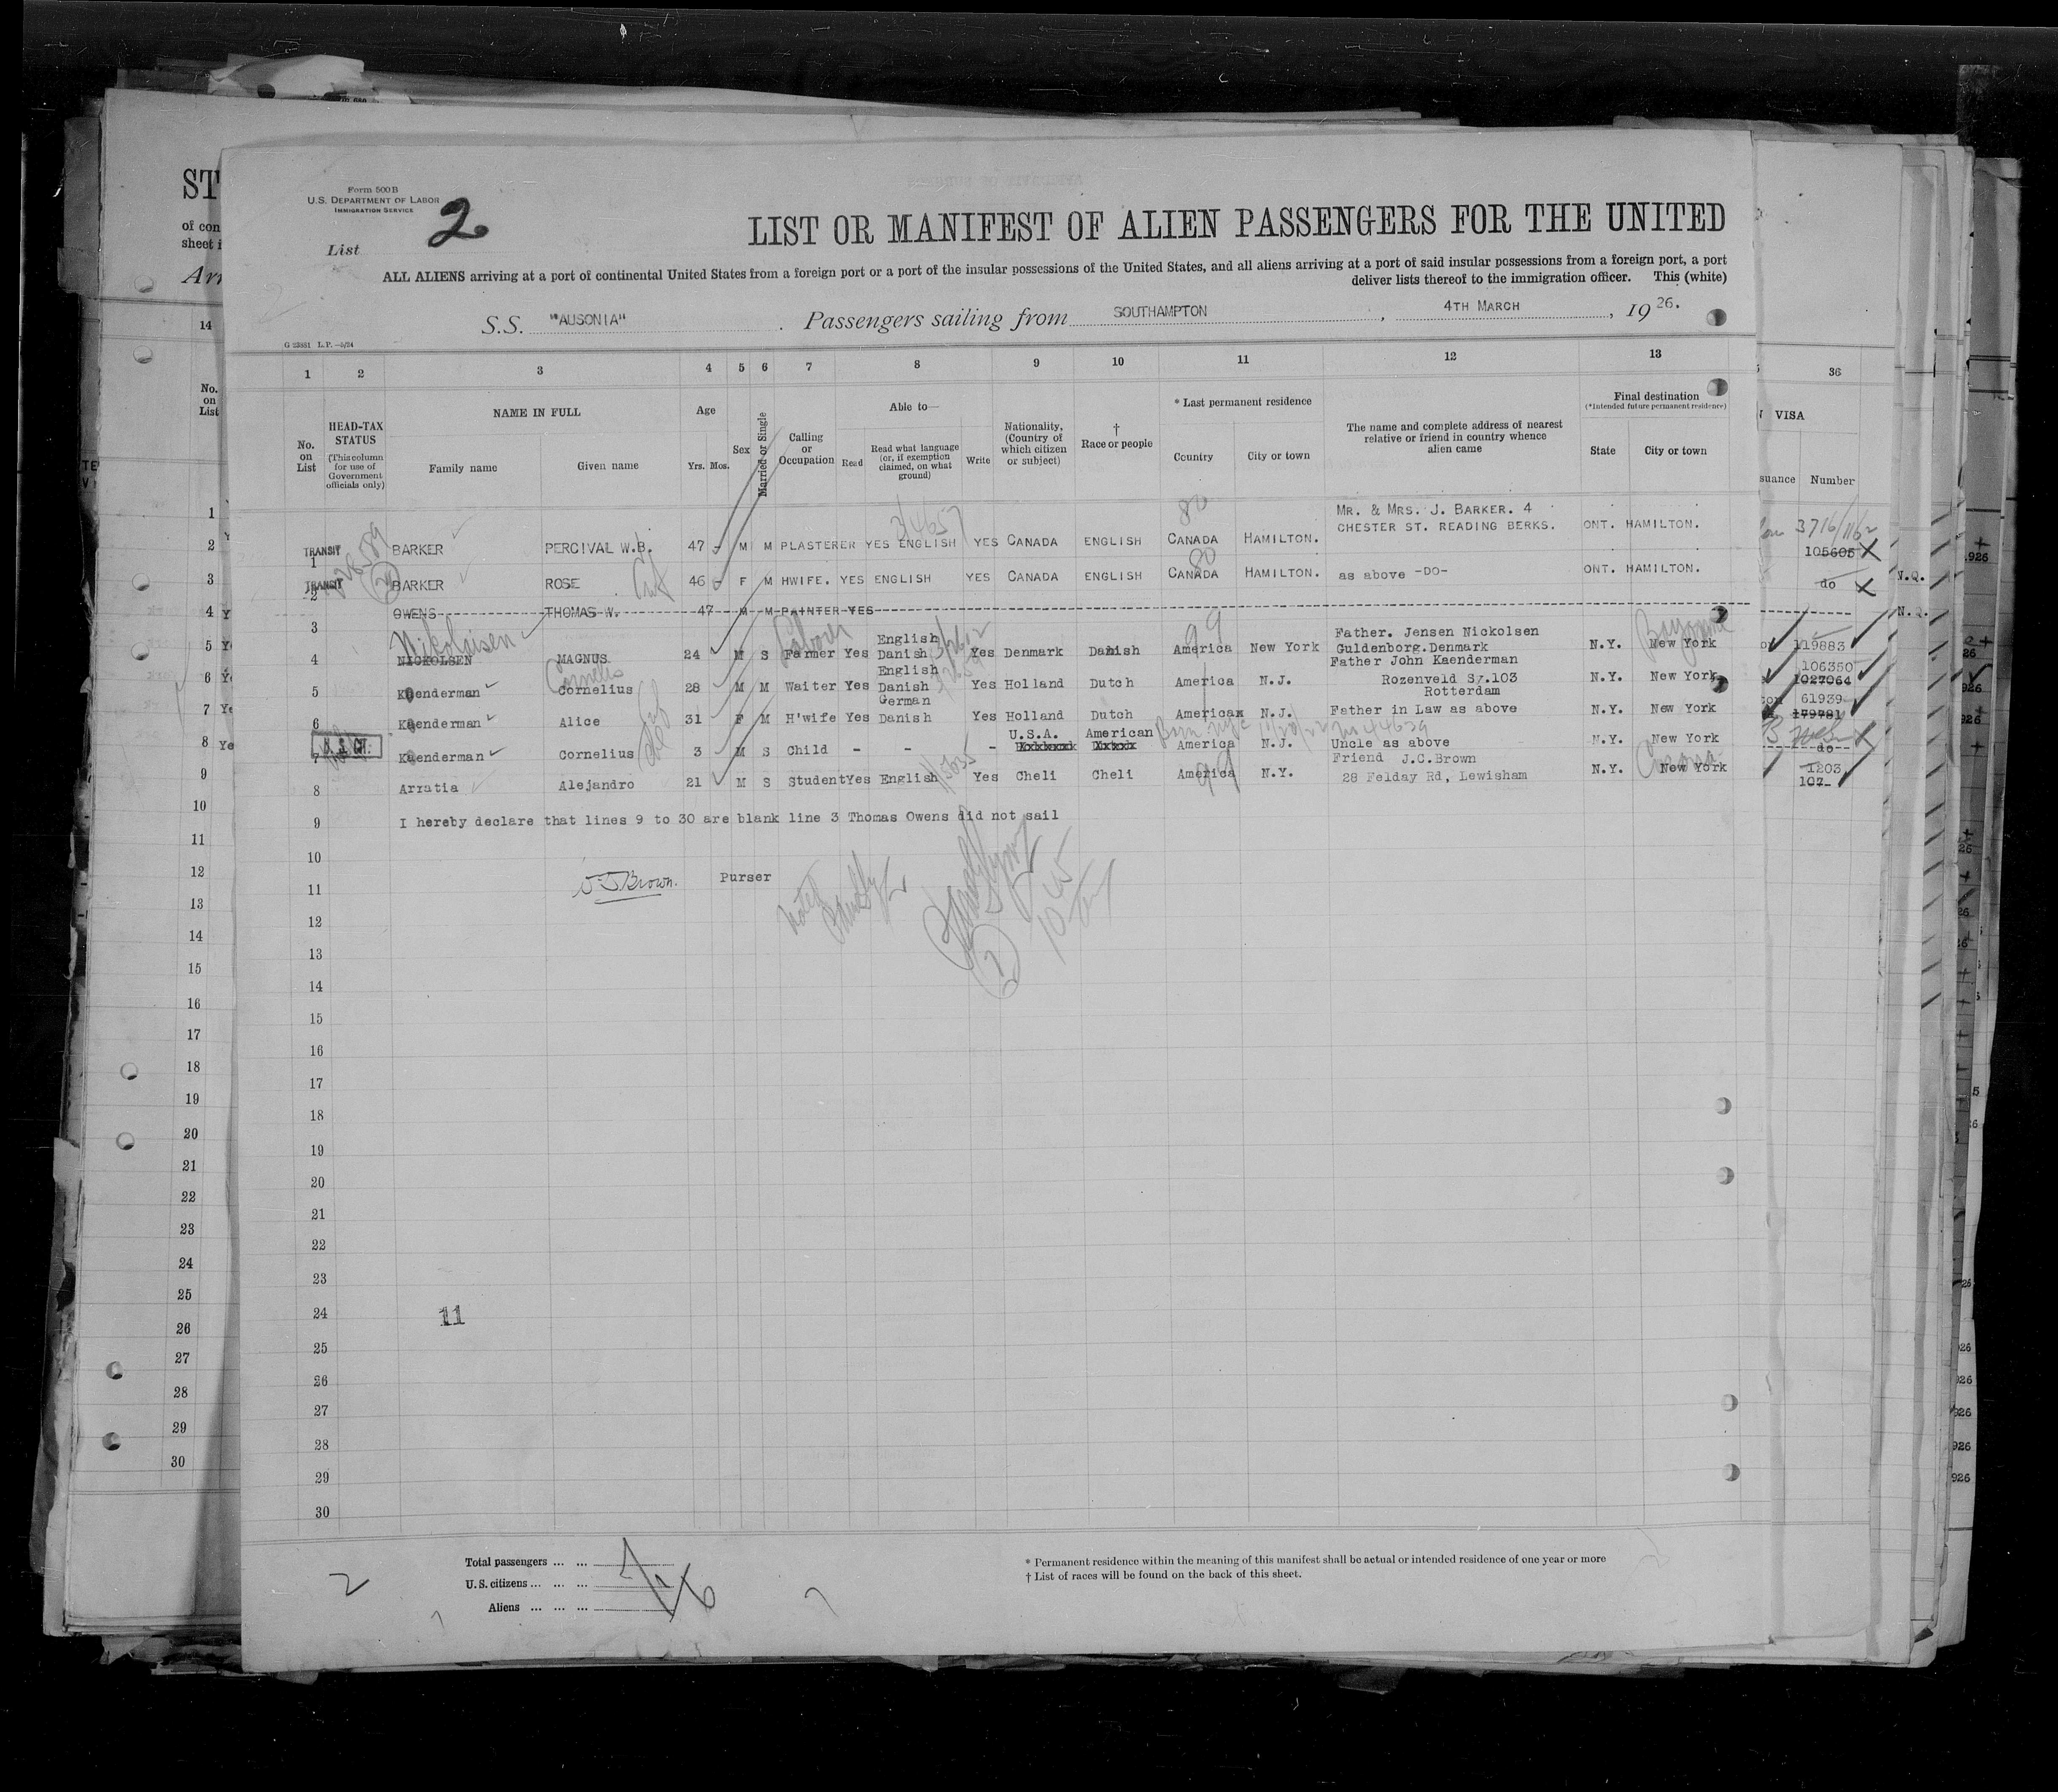 Form 500 B
U.S. DEPARTMENT OF LABOR
IMMIGRATION SERVICE
List 2
LIST OR MANIFEST OF ALIEN PASSENGERS FOR THE UNITED
ALL ALIENS arriving at a port of continental United States from a foreign port or a port of the insular possessions of the United States, and all aliens arriving at a port of said insular possessions from a foreign port, a port
deliver lists thereof to the immigration officer. This (white)
S.S. "AUSONIA" . Passengers sailing from SOUTHAMPTON , 4TH MARCH , 19 26.
G 23881 L.P. —5/24
1 2 3 4 5 6 7 8 9 10 11 12 13
No. on List
HEAD-TAX STATUS (This column for use of Government officials only)
NAME IN FULL
Family name Given name
Age
Yrs. Mos.
Sex
Married or Single
Calling or Occupation
Able to—
Read Read what language (or, if exemption claimed, on what ground) Write
Nationality, (Country of which citizen or subject)
† Race or people
* Last permanent residence
Country City or town
The name and complete address of nearest relative or friend in country whence alien came
Final destination
(*Intended future permanent residence)
State City or town
36
VISA
suance Number
1 TRANSIT BARKER PERCIVAL W.B. 47 - M M PLASTERER YES ENGLISH YES CANADA ENGLISH CANADA HAMILTON. MR. & MRS. J. BARKER. 4 CHESTER ST. READING BERKS. ONT. HAMILTON. 105605
2 TRANSIT BARKER ROSE 46 - F M HWIFE. YES ENGLISH YES CANADA ENGLISH CANADA HAMILTON. as above -DO- ONT. HAMILTON. do
3 OWENS THOMAS W. 47 M M PAINTER YES
Nikolaisen
4 NICKOLSEN MAGNUS 24 M S Farmer Laborer Yes English Danish Yes Denmark Danish America New York Father. Jensen Nickolsen Guldenborg.Denmark N.Y. New York Bayonne 119883
5 Kaenderman Cornelius Cornelis 28 M M Waiter Yes English Danish German Yes Holland Dutch America N.J. Father John Kaenderman Rozenveld S/.103 Rotterdam N.Y. New York 106350 1027064
6 Kaenderman Alice 31 F M H'wife Yes Danish Yes Holland Dutch America N.J. Father in Law as above N.Y. New York 61939 179781
7 Kaenderman Cornelius 3 M S Child - - - U.S.A. American America N.J. Uncle as above N.Y. New York do
8 Arratia Alejandro 21 M S Student Yes English Yes Cheli Cheli America N.Y. Friend J.C.Brown 28 Felday Rd, Lewisham N.Y. New York Corona 1203 107-
9 I hereby declare that lines 9 to 30 are blank line 3 Thomas Owens did not sail
10
11 Brown. Purser
12
13
14
15
16
17
18
19
20
21
22
23
24 11
25
26
27
28
29
30
Total passengers ... ...
U.S. citizens ... ... ...
Aliens ... ... ...
2
* Permanent residence within the meaning of this manifest shall be actual or intended residence of one year or more
† List of races will be found on the back of this sheet.